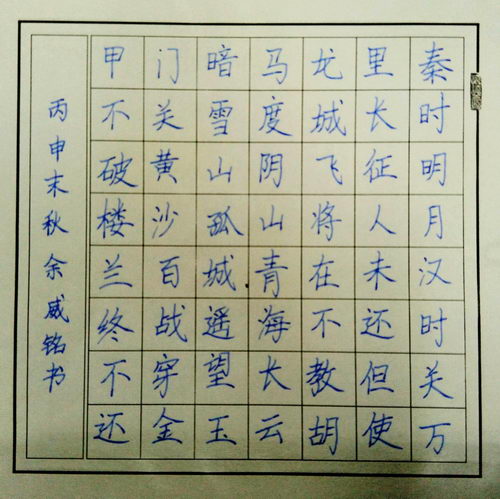 秦时明月汉时关万
里长征人未还但使
龙城飞将在不教胡
马度阴山青海长云
暗雪山孤城遥望玉
门关黄沙百战穿金
甲不破楼兰终不还
丙申末秋余威铭书